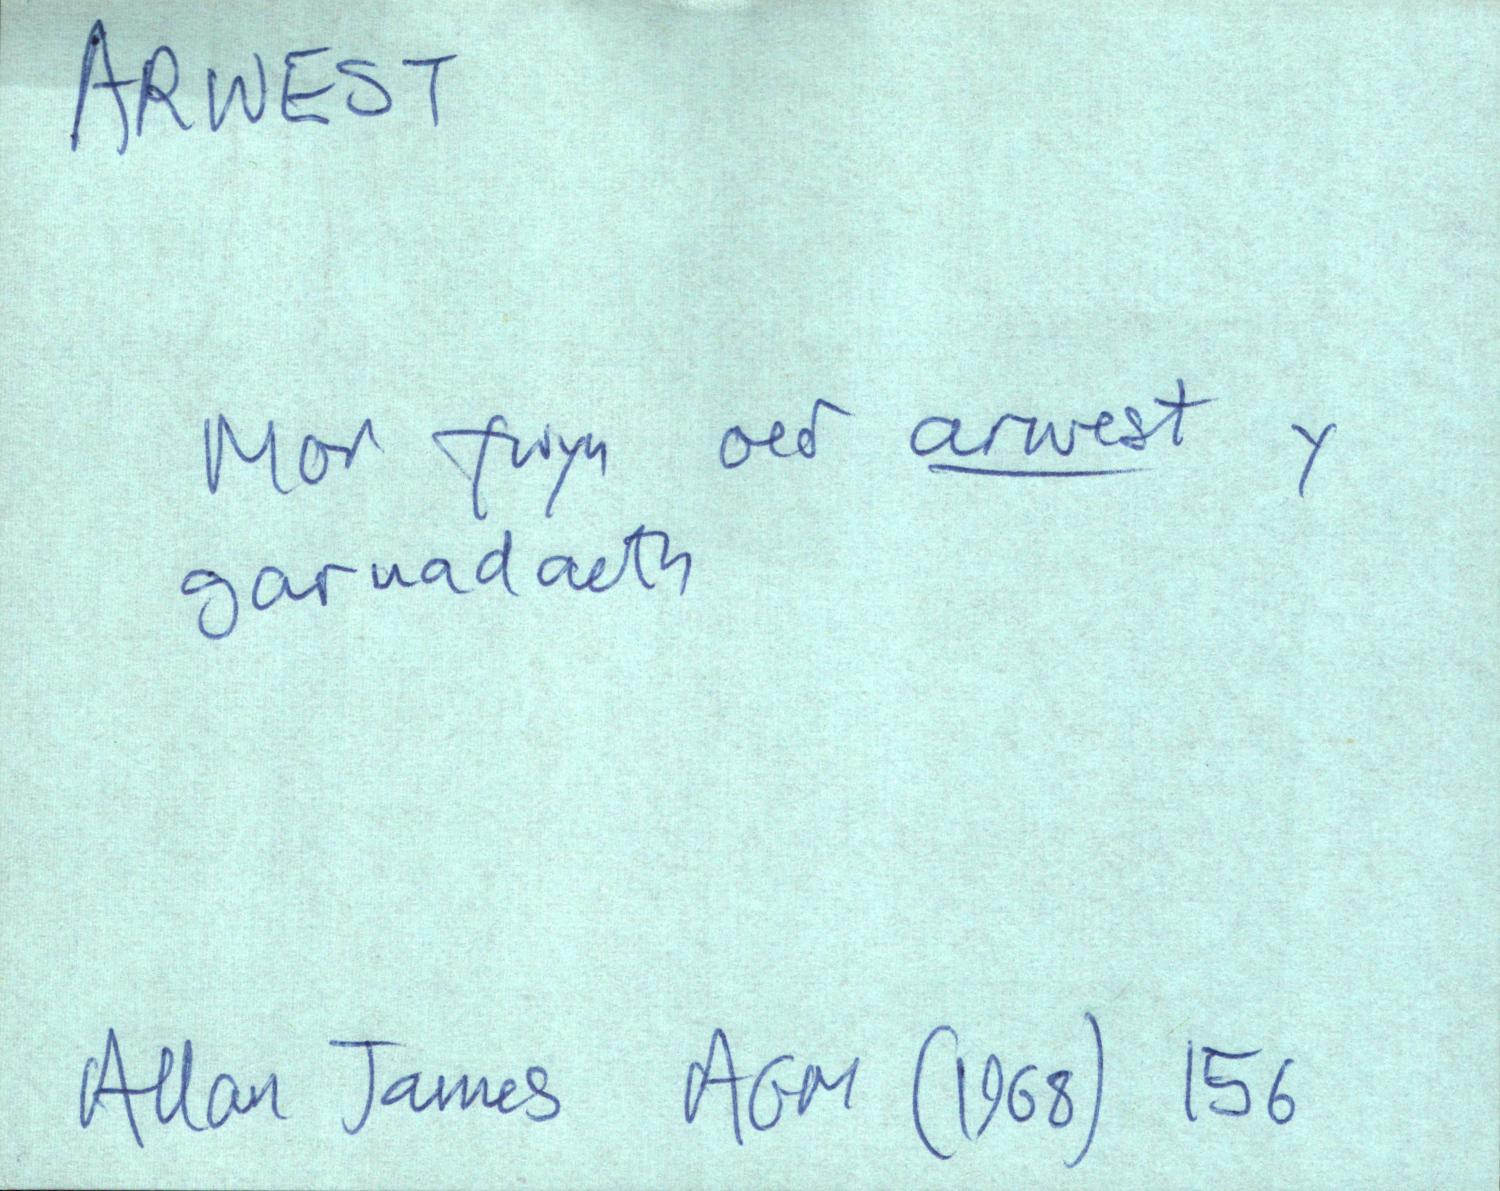 ARWEST
Mor fwyn oeδ arwest y
Allan James AGM (1968) 156